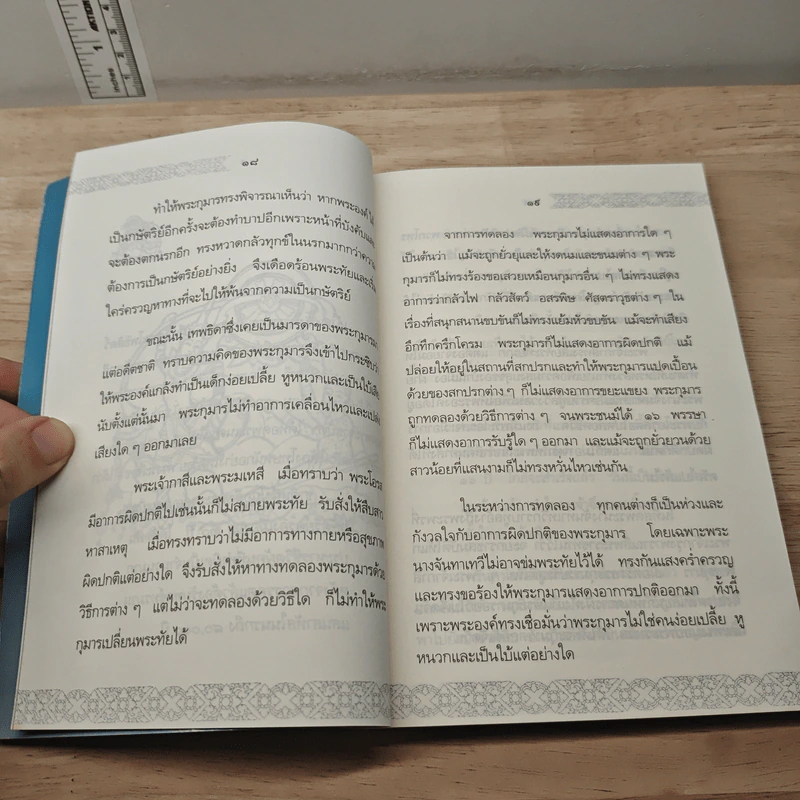 ๑๘
ทำให้พระกุมารทรงพิจารณาเห็นว่า หากพระองค์
เป็นกษัตริย์อีกครั้งจะต้องทำบาปอีกเพราะหน้าที่บังคับและ
จะต้องตกนรกอีก ทรงหวาดกลัวทุกข์ในนรกมากกว่า
ต้องการเป็นกษัตริย์อย่างยิ่ง จึงเดือดร้อนพระทัยและ
ใคร่ครวญหาทางที่จะไปให้พ้นจากความเป็นกษัตริย์
ขณะนั้น เทพธิดาซึ่งเคยเป็นมารดาของพระกุมาร
แต่อดีตชาติ ทราบความคิดของพระกุมารจึงเข้าไปกระซิบ
ให้พระองค์แกล้งทำเป็นเด็กง่อยเปลี้ย หูหนวกและเป็นใบ้
นับตั้งแต่นั้นมา พระกุมารไม่ทำอาการเคลื่อนไหวและ
เสียงใด ๆ ออกมาเลย
พระเจ้ากาสีและพระมเหสี เมื่อทราบว่า พระโอรส
มีอาการผิดปกติไปเช่นนั้นก็ไม่สบายพระทัย รับสั่งให้สืบสาว
หาสาเหตุ เมื่อทรงทราบว่าไม่มีอาการทางกายหรือสุขภาพ
ผิดปกติแต่อย่างใด จึงรับสั่งให้หาทางทดลองพระกุมารด้วย
วิธีการต่าง ๆ แต่ไม่ว่าจะทดลองด้วยวิธีใด ก็ไม่ทำให้พระ
กุมารเปลี่ยนพระทัยได้
๑๙
จากการทดลอง พระกุมารไม่แสดงอาการใด ๆ
เป็นต้นว่า แม้จะถูกยั่วยุและให้งดนมและขนมต่าง ๆ พระ
กุมารก็ไม่ทรงร้องขอเสวยเหมือนกุมารอื่น ๆ ไม่ทรงแสดง
อาการว่ากลัวไฟ กลัวสัตว์ อสรพิษ ศัสตราวุธต่าง ๆ ใน
เรื่องที่สนุกสนานขบขันก็ไม่ทรงแย้มหัวขบขัน แม้จะทำเสียง
อึกทึกครึกโครม พระกุมารก็ไม่แสดงอาการผิดปกติ แม้
ปล่อยให้อยู่ในสถานที่สกปรกและทำให้พระกุมารแปดเปื้อน
ด้วยของสกปรกต่าง ๆ ก็ไม่แสดงอาการขยะแขยง พระกุมาร
ถูกทดลองด้วยวิธีการต่าง ๆ จนพระชนม์ได้ ๑๖ พรรษา
ก็ไม่แสดงอาการรับรู้ใด ๆ ออกมา และแม้จะถูกยั่วยวนด้วย
สาวน้อยที่แสนงามก็ไม่ทรงหวั่นไหวเช่นกัน
ในระหว่างการทดลอง ทุกคนต่างก็เป็นห่วงและ
กังวลใจกับอาการผิดปกติของพระกุมาร โดยเฉพาะพระ
นางจันทาเทวีไม่อาจข่มพระทัยไว้ได้ ทรงกันแสงคร่ำครวญ
และทรงขอร้องให้พระกุมารแสดงอาการปกติออกมา ทั้งนี้
เพราะพระองค์ทรงเชื่อมั่นว่าพระกุมารไม่ใช่คนง่อยเปลี้ย หู
หนวกและเป็นใบ้แต่อย่างใด